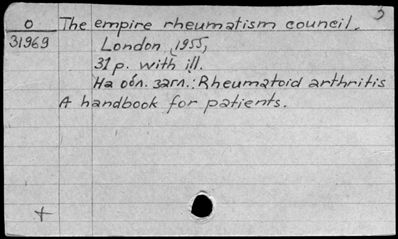 3
О The empire rheumatism council.
31969 London, 1955,
31 p. with ill.
На обл. загл.: Rheumatoid arthritis
A handbook for patients.
+